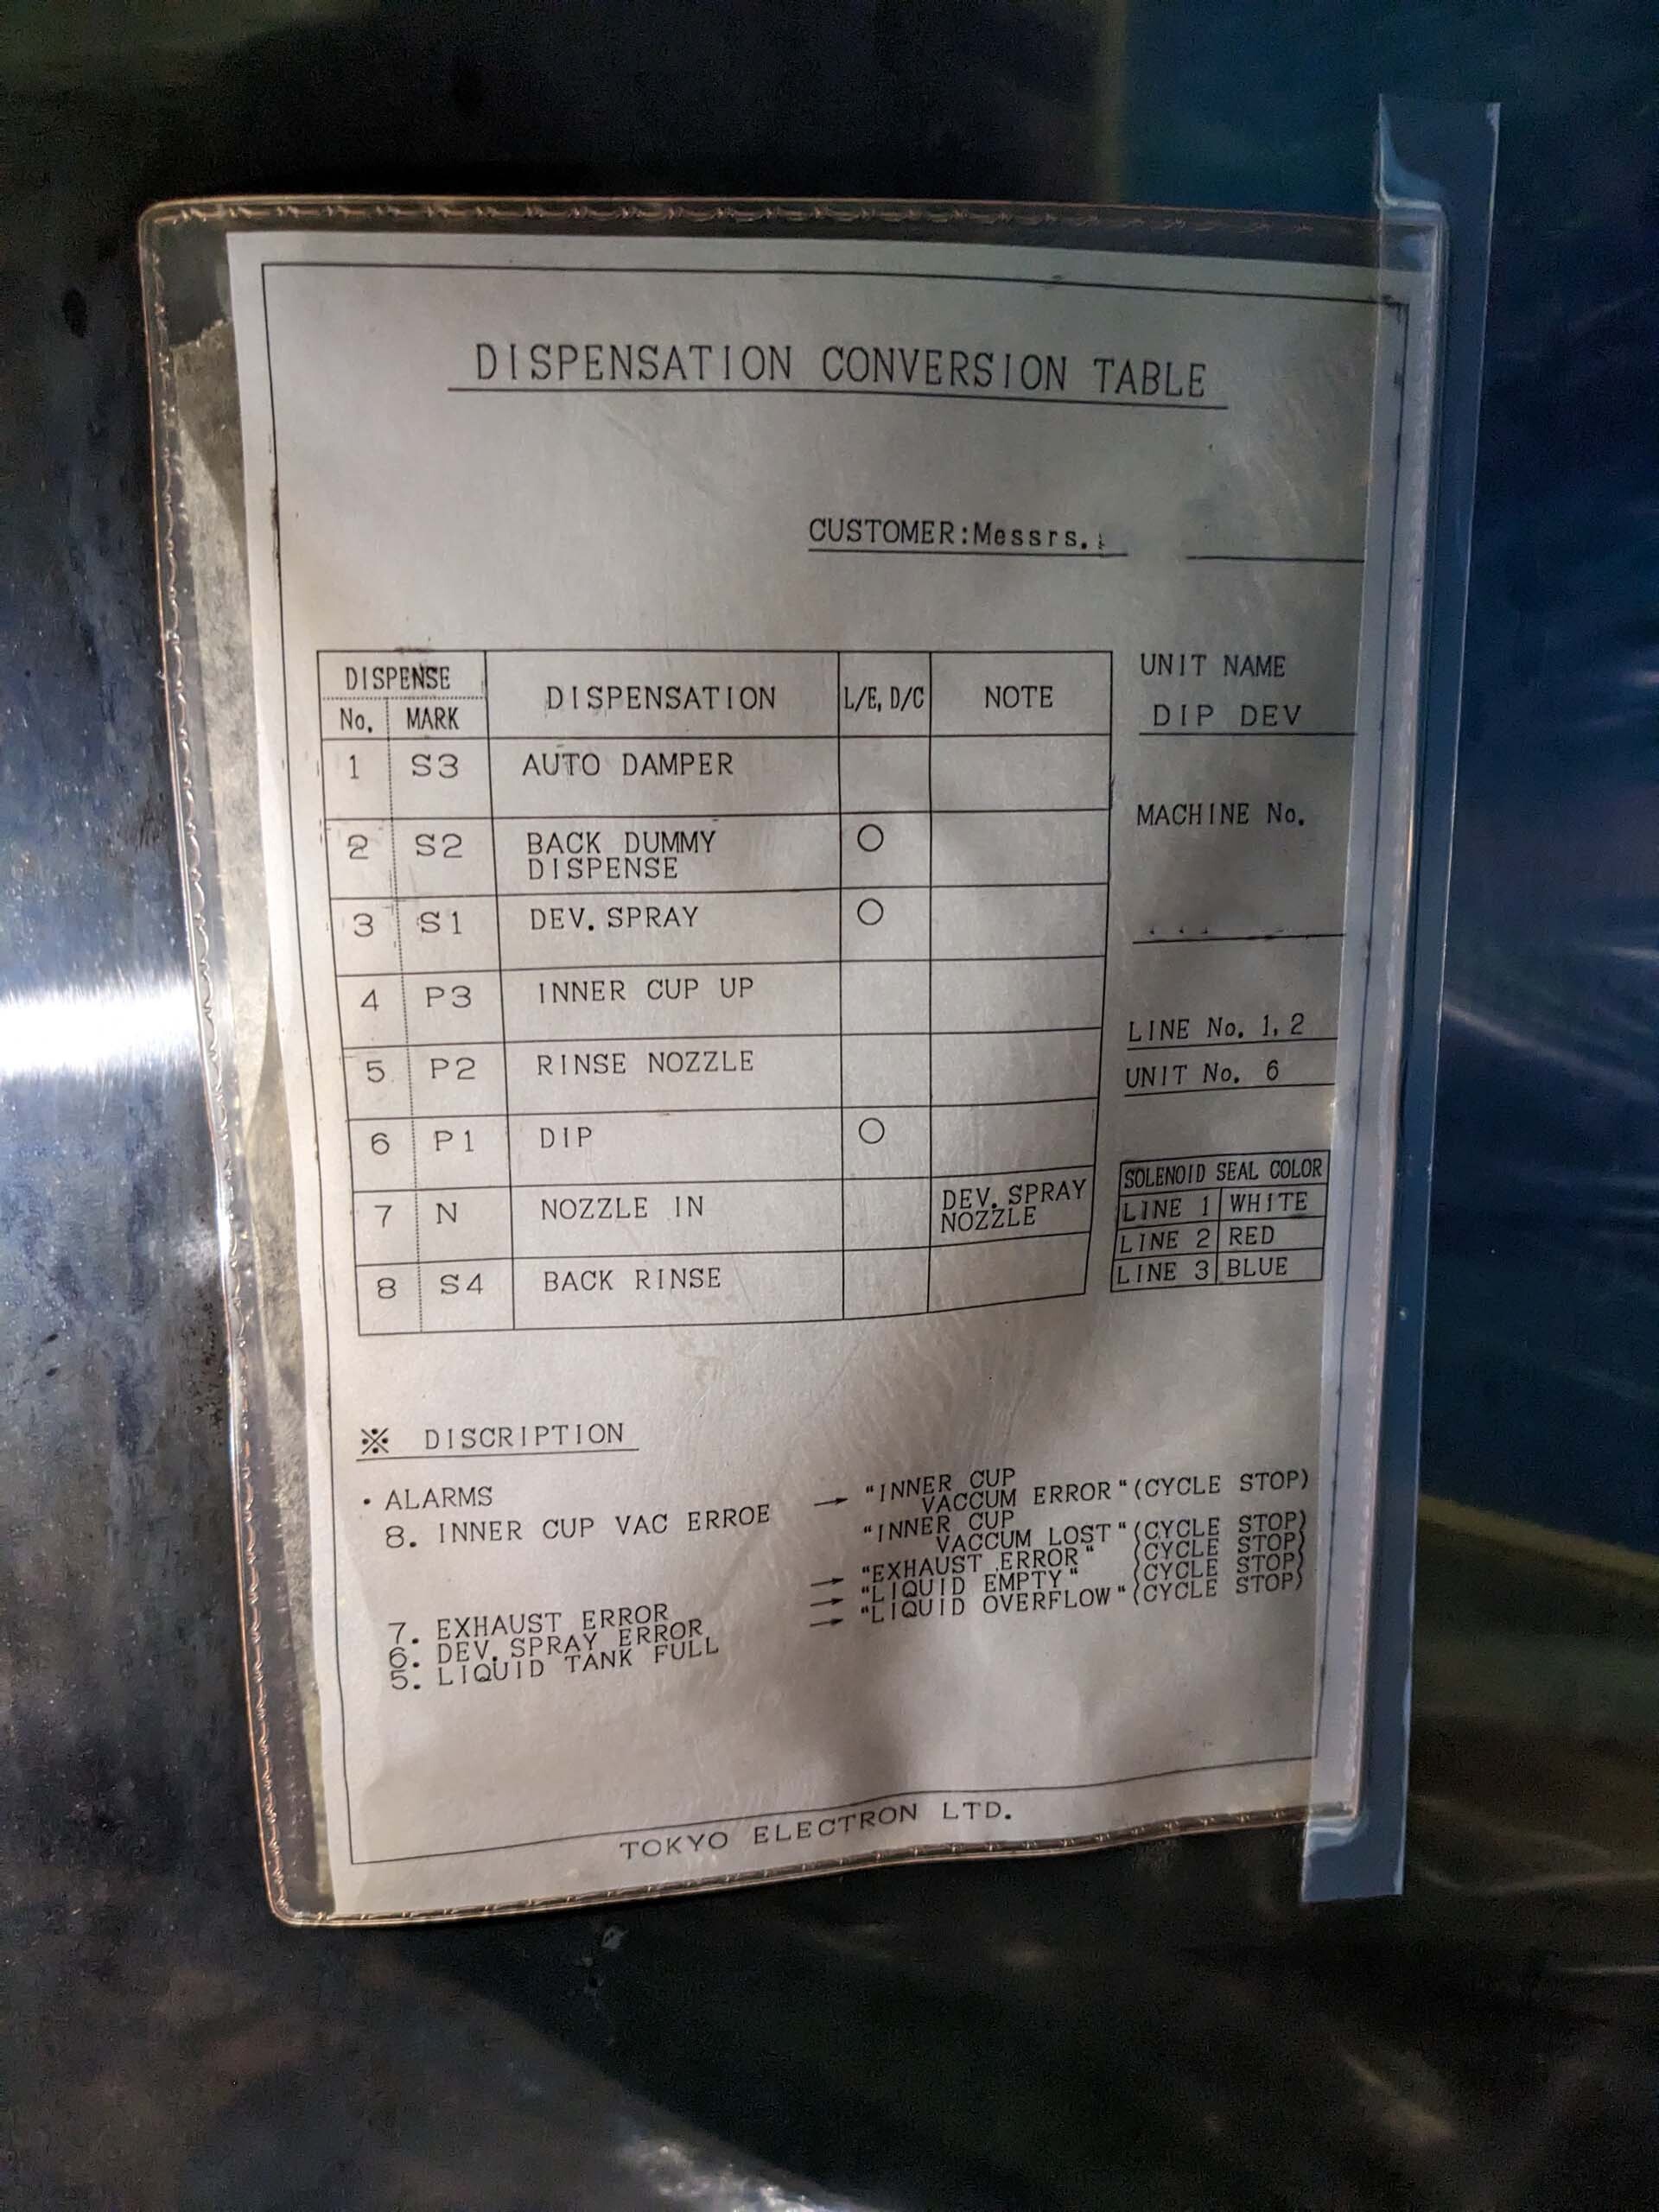 DISPENSATION CONVERSION TABLE
CUSTOMER:Messrs.
DISPENSE
No. MARK DISPENSATION L/E, D/C NOTE
1 S3 AUTO DAMPER
2 S2 BACK DUMMY
DISPENSE ○
3 S1 DEV. SPRAY ○
4 P3 INNER CUP UP
5 P2 RINSE NOZZLE
6 P1 DIP ○
7 N NOZZLE IN DEV. SPRAY
NOZZLE
8 S4 BACK RINSE
UNIT NAME
DIP DEV
MACHINE No.
LINE No. 1, 2
UNIT No. 6
SOLENOID SEAL COLOR
LINE 1 WHITE
LINE 2 RED
LINE 3 BLUE
※ DISCRIPTION
・ALARMS
8. INNER CUP VAC ERROE → "INNER CUP
VACCUM ERROR" (CYCLE STOP)
"INNER CUP
VACCUM LOST" (CYCLE STOP)
7. EXHAUST ERROR → "EXHAUST ERROR" (CYCLE STOP)
6. DEV. SPRAY ERROR → "LIQUID EMPTY" (CYCLE STOP)
5. LIQUID TANK FULL → "LIQUID OVERFLOW" (CYCLE STOP)
TOKYO ELECTRON LTD.